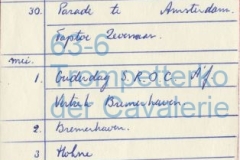 30. Parade te Amsterdam.
Taptoe Zevenaar.
mei.
1. Ouderdag S.R.O.C. A'f.
Vertrek Bremerhaven
2. Bremerhaven.
3 Hohne
63-6
Trompetterko
der Cavalerie